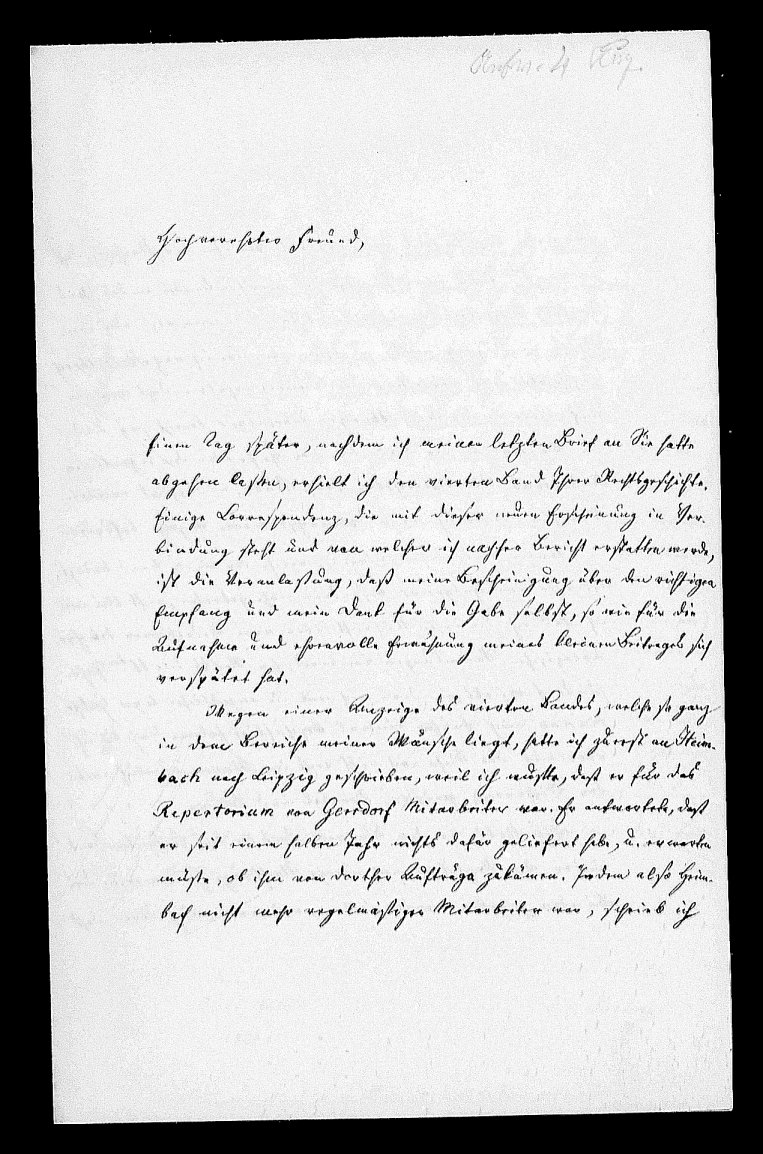 Antw. 4 Aug.
Hochverehrter Freund,
Einen Tag später, nachdem ich meinen letzten Brief an Sie hatte
abgehen laßen, erhielt ich den vierten Band Ihrer Rechtsgeschichte.
Einige Correspondenz, die mit dieser neuen Erscheinung in Ver-
bindung steht und von welcher ich nachher Bericht erstatten werde,
ist die Veranlaßung, daß meine Bescheinigung über den richtigen
Empfang und mein Dank für die Gabe selbst, so wie für die
Aufnahme und ehrenvolle Erwähnung meines kleinen Beitrages sich
verspätet hat.
Wegen einer Anzeige des vierten Bandes, welche so ganz
in dem Bereiche meiner Wünsche liegt, hatte ich zuerst an Heim-
bach nach Leipzig geschrieben, weil ich wußte, daß er für das
Repertorium von Gersdorf Mitarbeiter war. Er antwortete, daß
er seit einem halben Jahr nichts dafür geliefert habe, u. erwarten
müsse, ob ihm von dorther Aufträge zukämen. Indem also Heim-
bach nicht mehr regelmäßiger Mitarbeiter war, schrieb ich